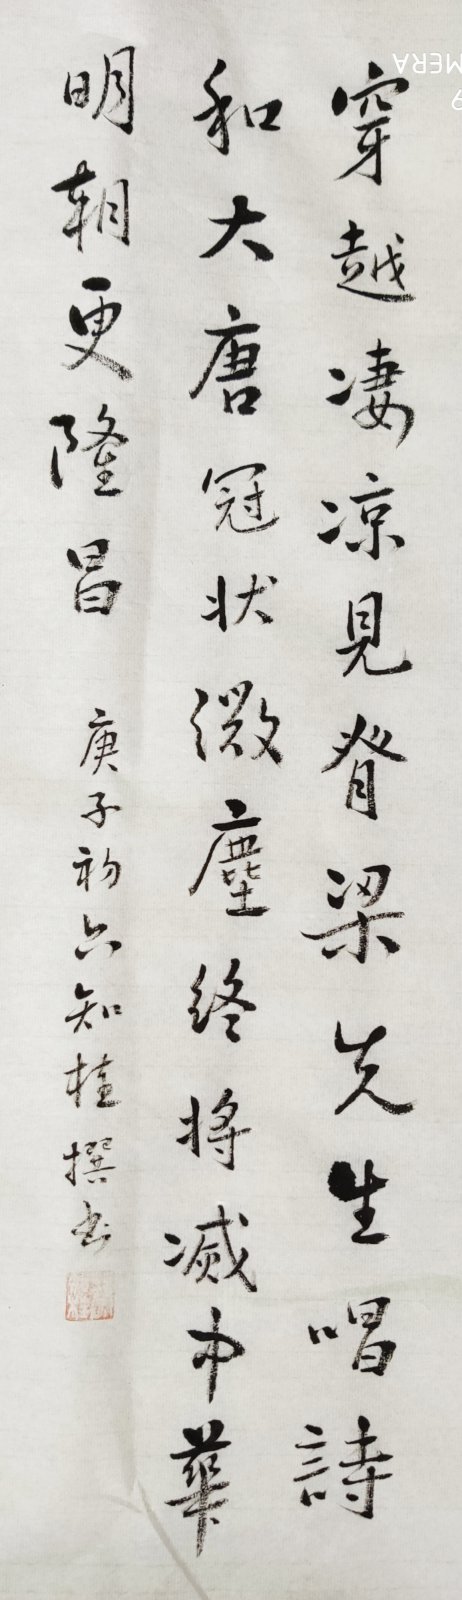 穿越凄凉見脊梁先生唱詩
和大唐冠状微塵终将滅中華
明朝更隆昌
庚子初六知桂撰书
MERA
9